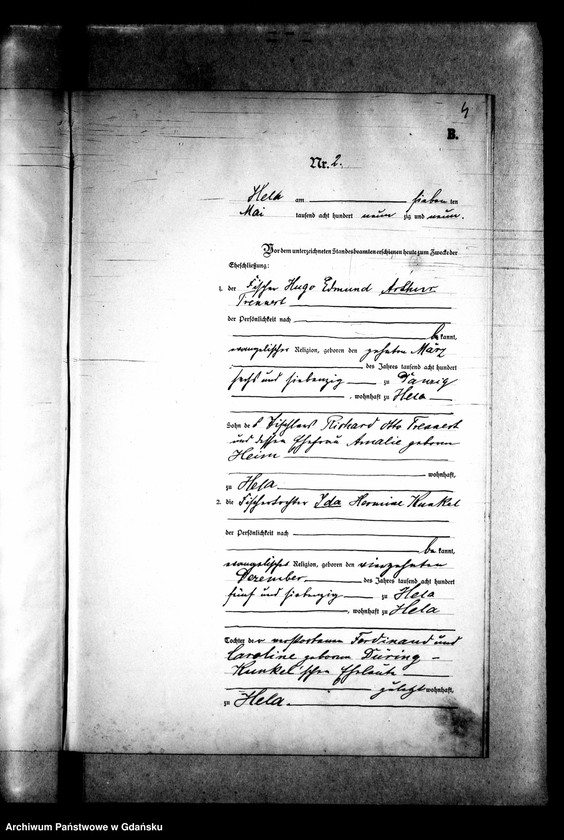 4
B.
Nr. 2.
Hela am sieben ten
Mai tausend acht hundert neun zig und neun.
Vor dem unterzeichneten Standesbeamten erschienen heute zum Zwecke der
Eheschließung:
1. der Fischer Hugo Edmund Arthur
Trennert
der Persönlichkeit nach
be kannt,
evangelischer Religion, geboren den zehnten März
des Jahres tausend acht hundert
sechs und siebenzig zu Danzig
, wohnhaft zu Hela
Sohn des Tischlers Richard Otto Trennert
und dessen Ehefrau Amalie geborene
Heim
wohnhaft,
zu Hela
2. die Fischertochter Ida Hermine Kunkel
der Persönlichkeit nach
be kannt,
evangelischer Religion, geboren den vierzehnten
Dezember des Jahres tausend acht hundert
fünf und siebenzig zu Hela
, wohnhaft zu Hela
Tochter der verstorbenen Ferdinand und
Caroline geborene Düring -
Kunkel'schen Eheleute
zuletzt wohnhaft,
zu Hela.
Archiwum Państwowe w Gdańsku